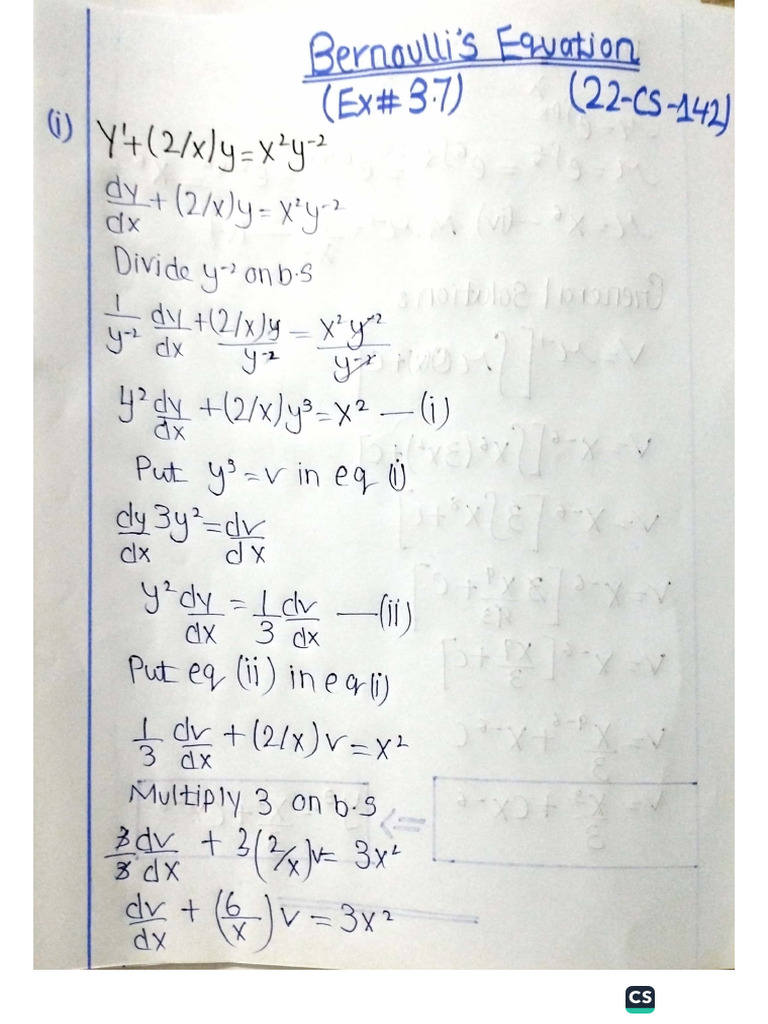 Bernoulli's Equation
(Ex# 3.7) (22-CS-142)
(i) Y'+(2/x)y=x²y⁻²
dy/dx + (2/x)y = x²y⁻²
Divide y⁻² on b.s
1/y⁻² dy/dx + (2/x)y/y⁻² = x²y⁻²/y⁻²
y² dy/dx + (2/x)y³ = x² — (i)
Put y³ = v in eq (i)
dy/dx 3y² = dv/dx
y² dy/dx = 1/3 dv/dx — (ii)
Put eq (ii) in eq (i)
1/3 dv/dx + (2/x)v = x²
Multiply 3 on b.s
3/3 dv/dx + 3(2/x)v = 3x²
dv/dx + (6/x)v = 3x²
CS